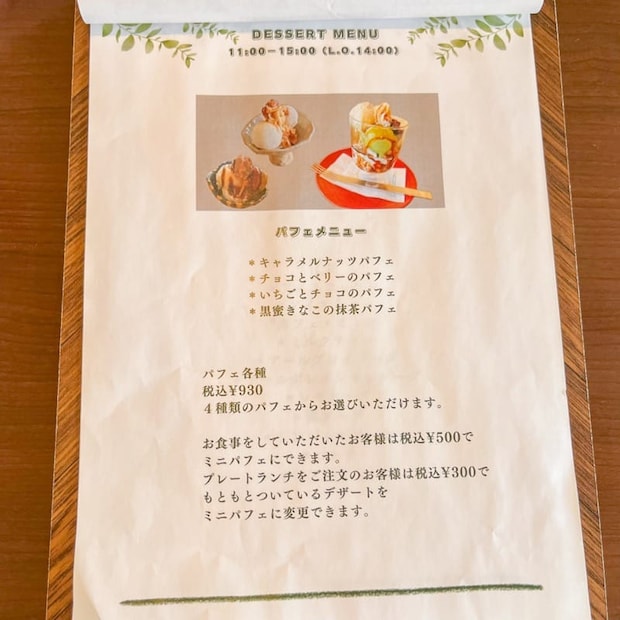 DESSERT MENU
11:00－15:00（L.O.14:00）
パフェメニュー
＊キャラメルナッツパフェ
＊チョコとベリーのパフェ
＊いちごとチョコのパフェ
＊黒蜜きなこの抹茶パフェ
パフェ各種
税込¥930
４種類のパフェからお選びいただけます。
お食事をしていただいたお客様は税込¥500で
ミニパフェにできます。
プレートランチをご注文のお客様は税込¥300で
もともとついているデザートを
ミニパフェに変更できます。